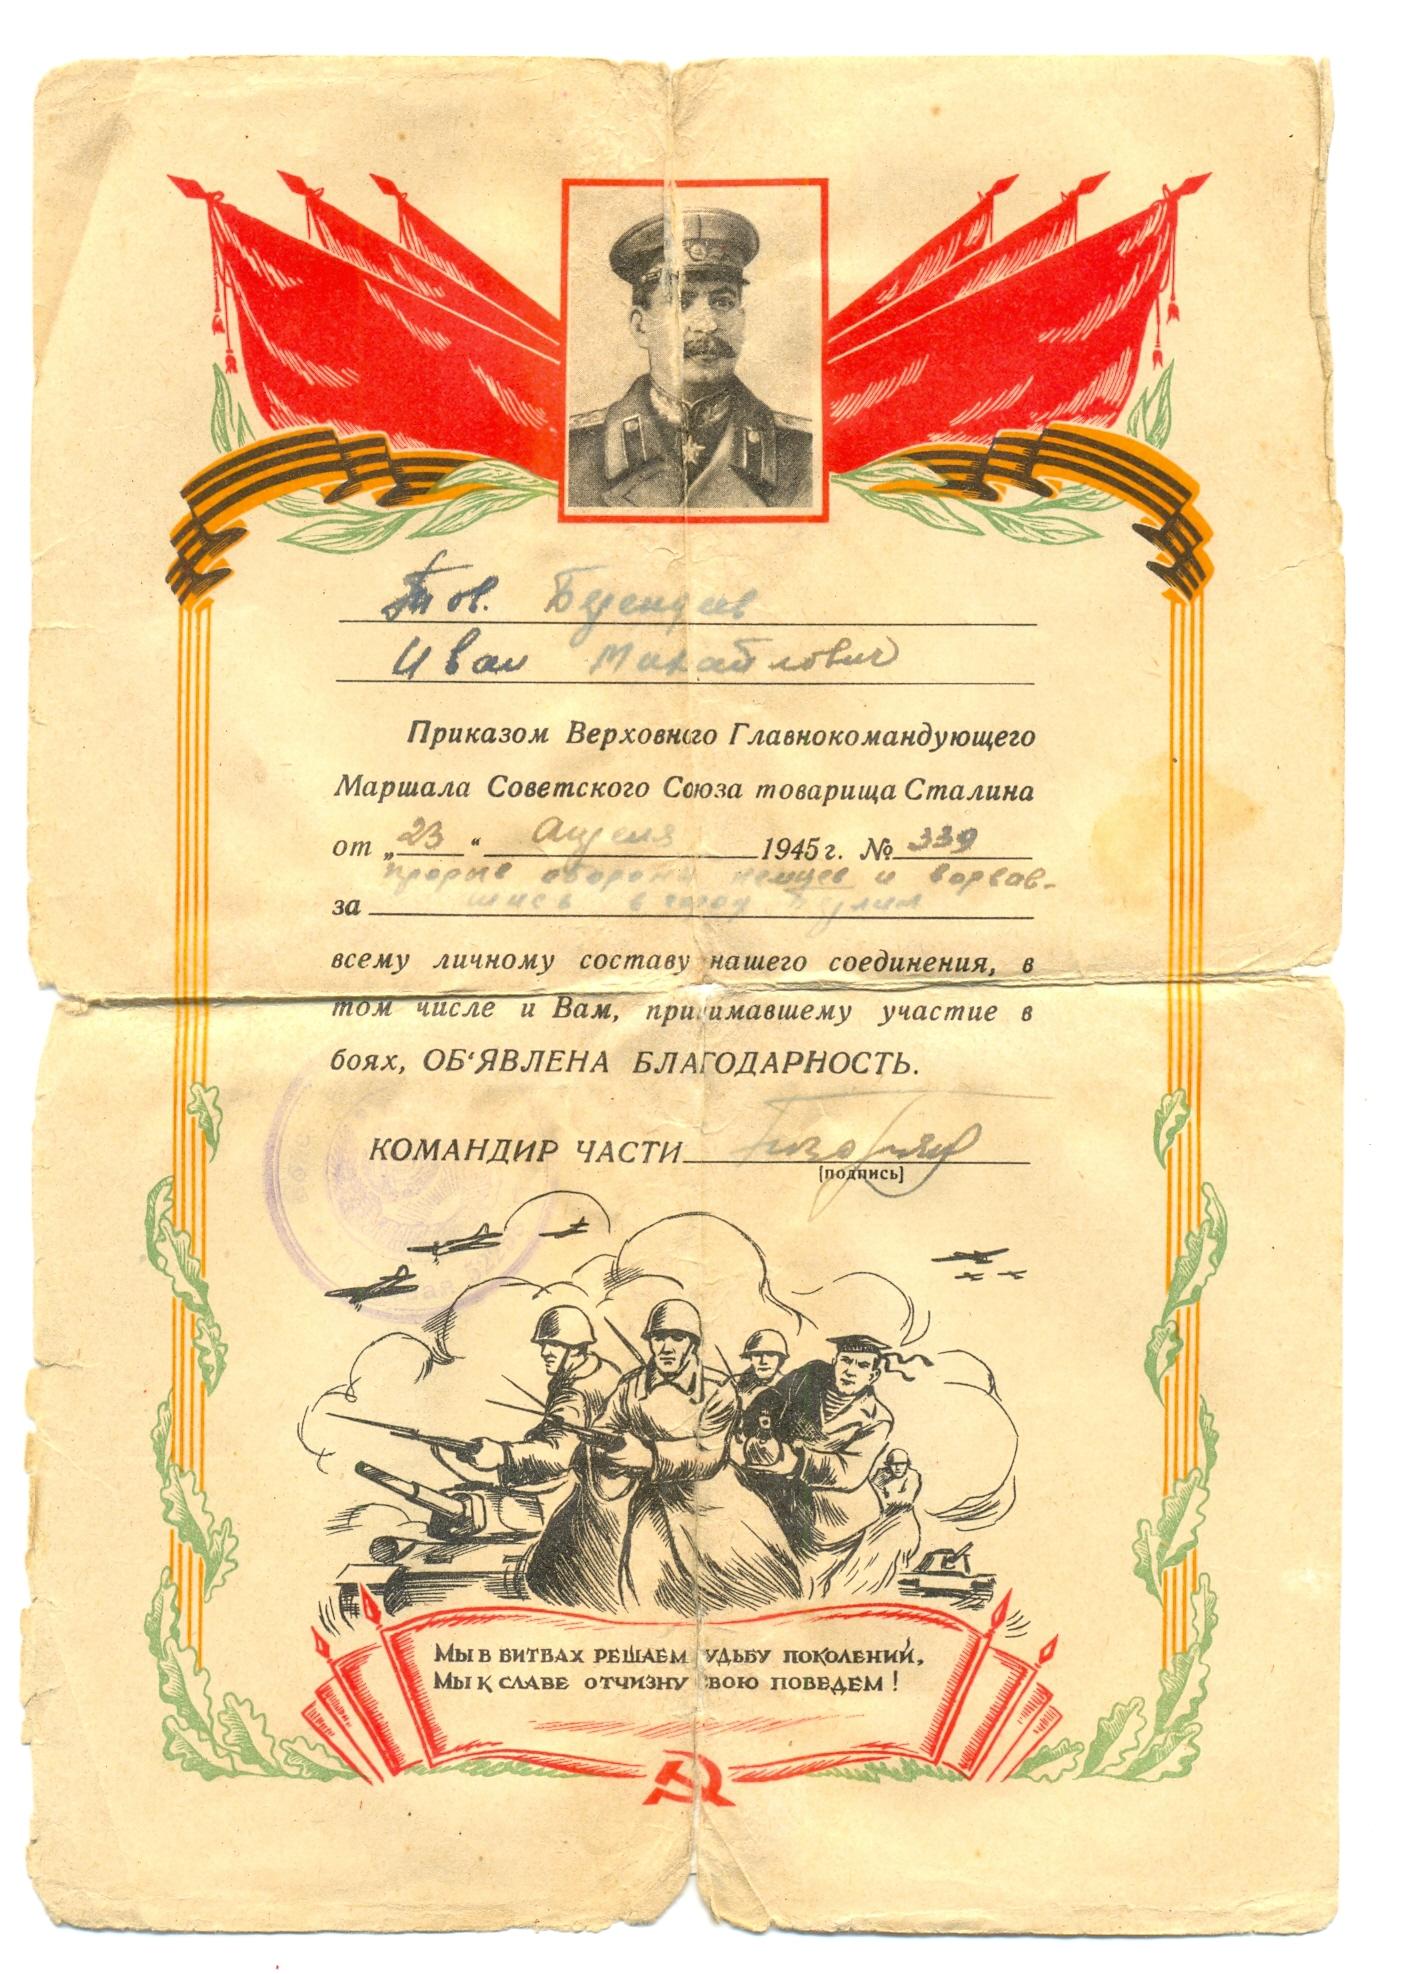 Тов. Березцев
Иван Михайлович
Приказом Верховного Главнокомандующего
Маршала Советского Союза товарища Сталина
от „23“ Апреля 1945 г. № 339
прорыв обороны немцев и ворвав-
за шись в город Берлин
всему личному составу нашего соединения, в
том числе и Вам, принимавшему участие в
боях, ОБ‘ЯВЛЕНА БЛАГОДАРНОСТЬ.
КОМАНДИР ЧАСТИ
[подпись]
МЫ В БИТВАХ РЕШАЕМ СУДЬБУ ПОКОЛЕНИЙ,
МЫ К СЛАВЕ ОТЧИЗНУ СВОЮ ПОВЕДЕМ!